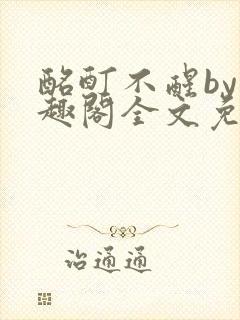 酩酊不醒by
趣阁全文免
治通通